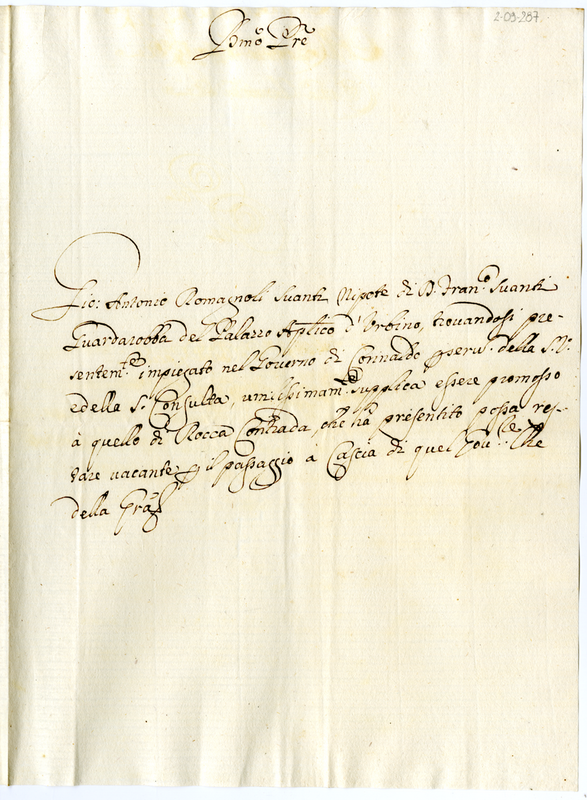 2-09-287.
B.mo P.re
Gio: Antonio Romagnoli Suanti Nipote di D. Fran.o Suanti
Guardarobba del Palazzo Aplico d'Urbino, trovandosi pre-
sentem.te impiegato nel Governo di Corinaldo per serv. della S. V.
e della S. Consulta, umilissimam.te supplica essere promosso
à quello di Rocca Contrada, che hà presentito possa res-
tare vacante p il passaggio a Cascia di quel Gov.re Che
della Gra